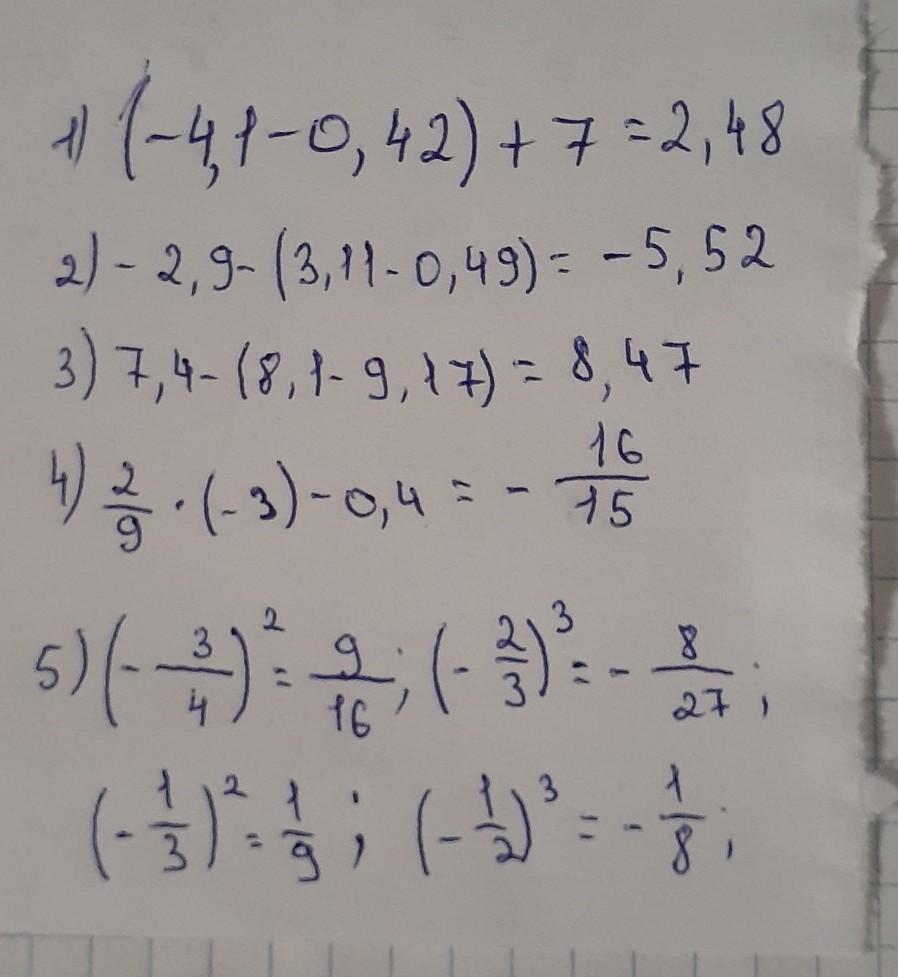 1) (-4,1-0,42)+7=2,48
2) -2,9-(3,11-0,49)=-5,52
3) 7,4-(8,1-9,17)=8,47
4) 2/9 · (-3)-0,4=-16/15
5) (-3/4)²=9/16; (-2/3)³=-8/27;
(-1/3)²=1/9; (-1/2)³=-1/8;